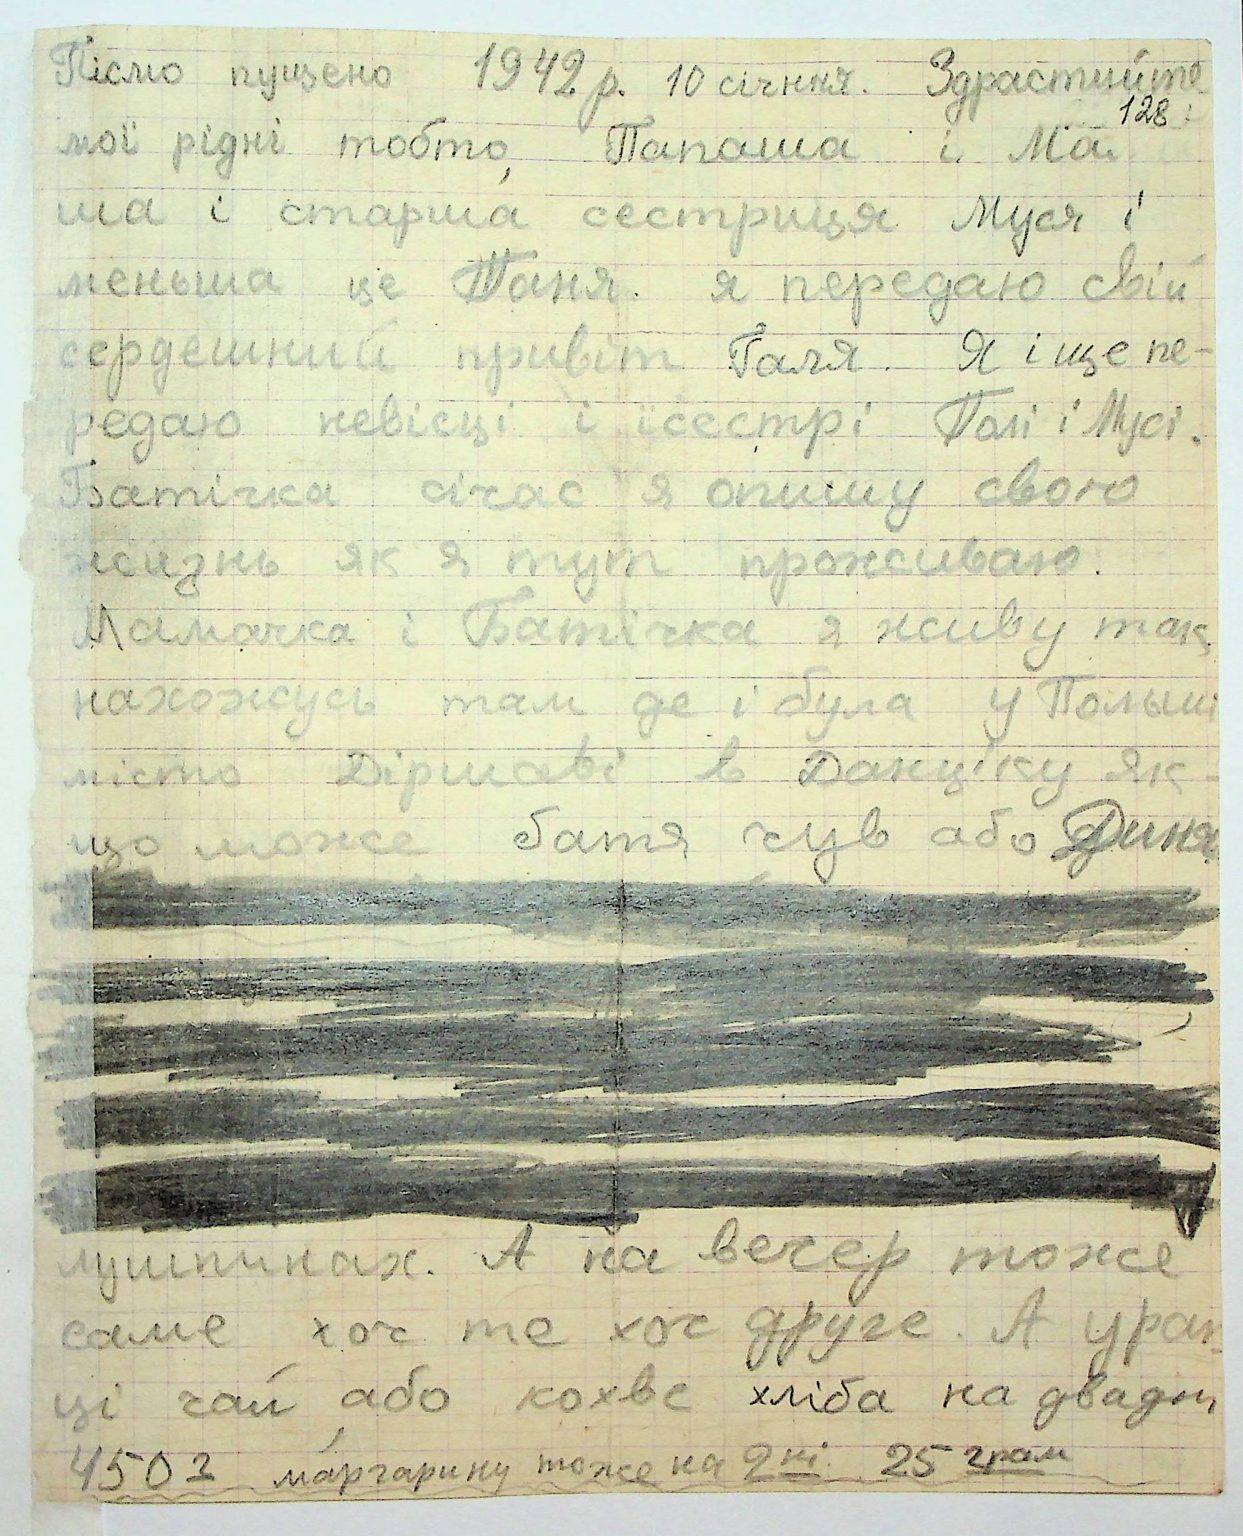 Пісмо пущено 1942 р. 10 січння. Здрастцийте
128
мої рідні тобто, Папаша і Ма
ша і старша сестриця Муся і
меньша це Таня. я передаю свій
сердешний привіт Галя. Я і ще пе-
редаю невісці і сестрі Галі і Мусі.
Батічка січас я опишу свою
жизнь як я тут проживаю.
Мамочка і Батічка я живу так
нахожусь там де і була у Польші
місто Діршаві в Данціку як-
що може батя чув або Диня
лушпинах. А на вечер тоже
саме хоч те хоч друге. А уран-
ці чай або кохве хліба на два дні
450 г маргарину тоже на 2 ні. 25 грам